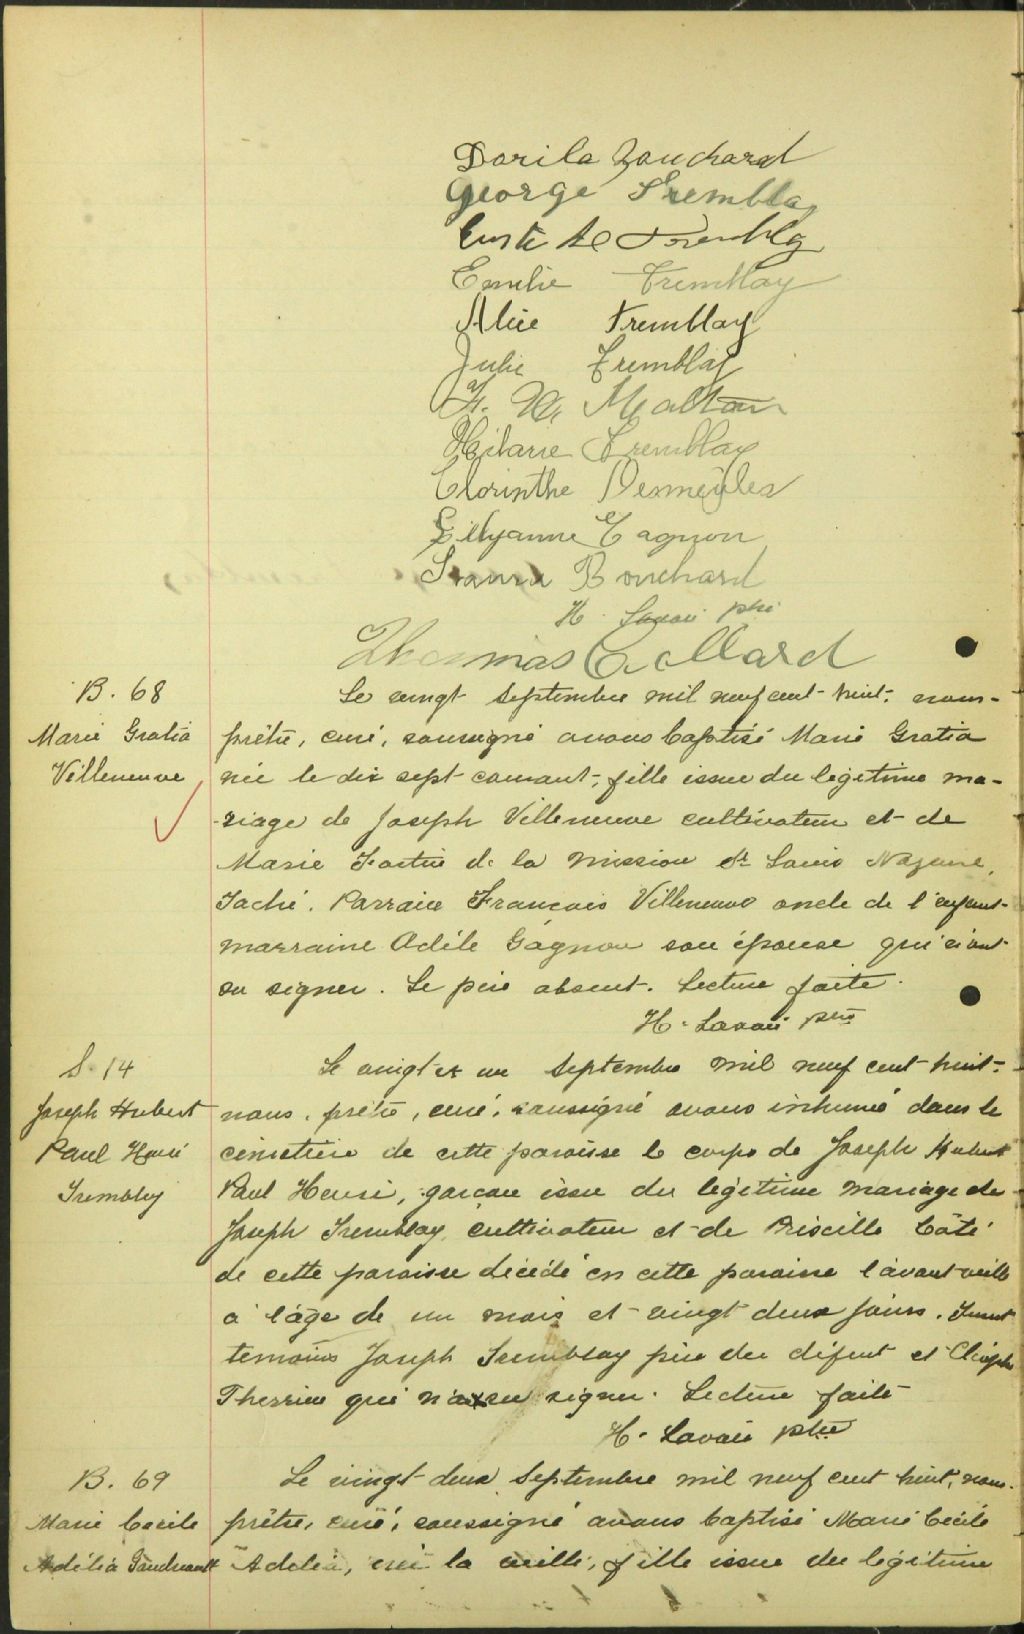 Dorila Bouchard
George Tremblay
Tremblay
Emilie Tremblay
Alice Tremblay
Julie Tremblay
F. X. Maltais
Hilarie Tremblay
Clorinthe Desmeules
Lillyanne Gagnon
Bouchard
H. Lavoie ptre
Thomas Collard
B. 68
Marie Gratia
Villeneuve
Le vingt septembre mil neuf cent huit, nous
prêtre, curé, soussigné avons baptisé Marie Gratia
née le dix sept courant, fille issue du légitime ma-
riage de Joseph Villeneuve cultivateur et de
Marie Fortin de la mission St Louis Nazaire,
Taché. Parrain Francois Villeneuve oncle de l'enfant
marraine Adèle Gagnon son épouse qui n'ont
su signer. Le père absent. Lecture faite.
H. Lavoie ptre
S. 14
Joseph Hubert
Paul Henri
Tremblay
Le vingt et un septembre mil neuf cent huit
nous, prêtre, curé, soussigné avons inhumé dans le
cimetière de cette paroisse le corps de Joseph Hubert
Paul Henri, garçon issu du légitime mariage de
Joseph Tremblay, cultivateur et de Priscille Côté
de cette paroisse décédé en cette paroisse l'avant veille
à l'âge de un mois et vingt deux jours. Furent
temoins Joseph Tremblay père du défunt et Cléophe
Therrien qui n'a su signer. Lecture faite
H. Lavoie ptre
B. 69
Marie Cecile
Adélia Gaudreault
Le vingt deux septembre mil neuf cent huit, nous
prêtre, curé, soussigné avons baptisé Marie Cécile
Adelia, née la veille, fille issue du légitime